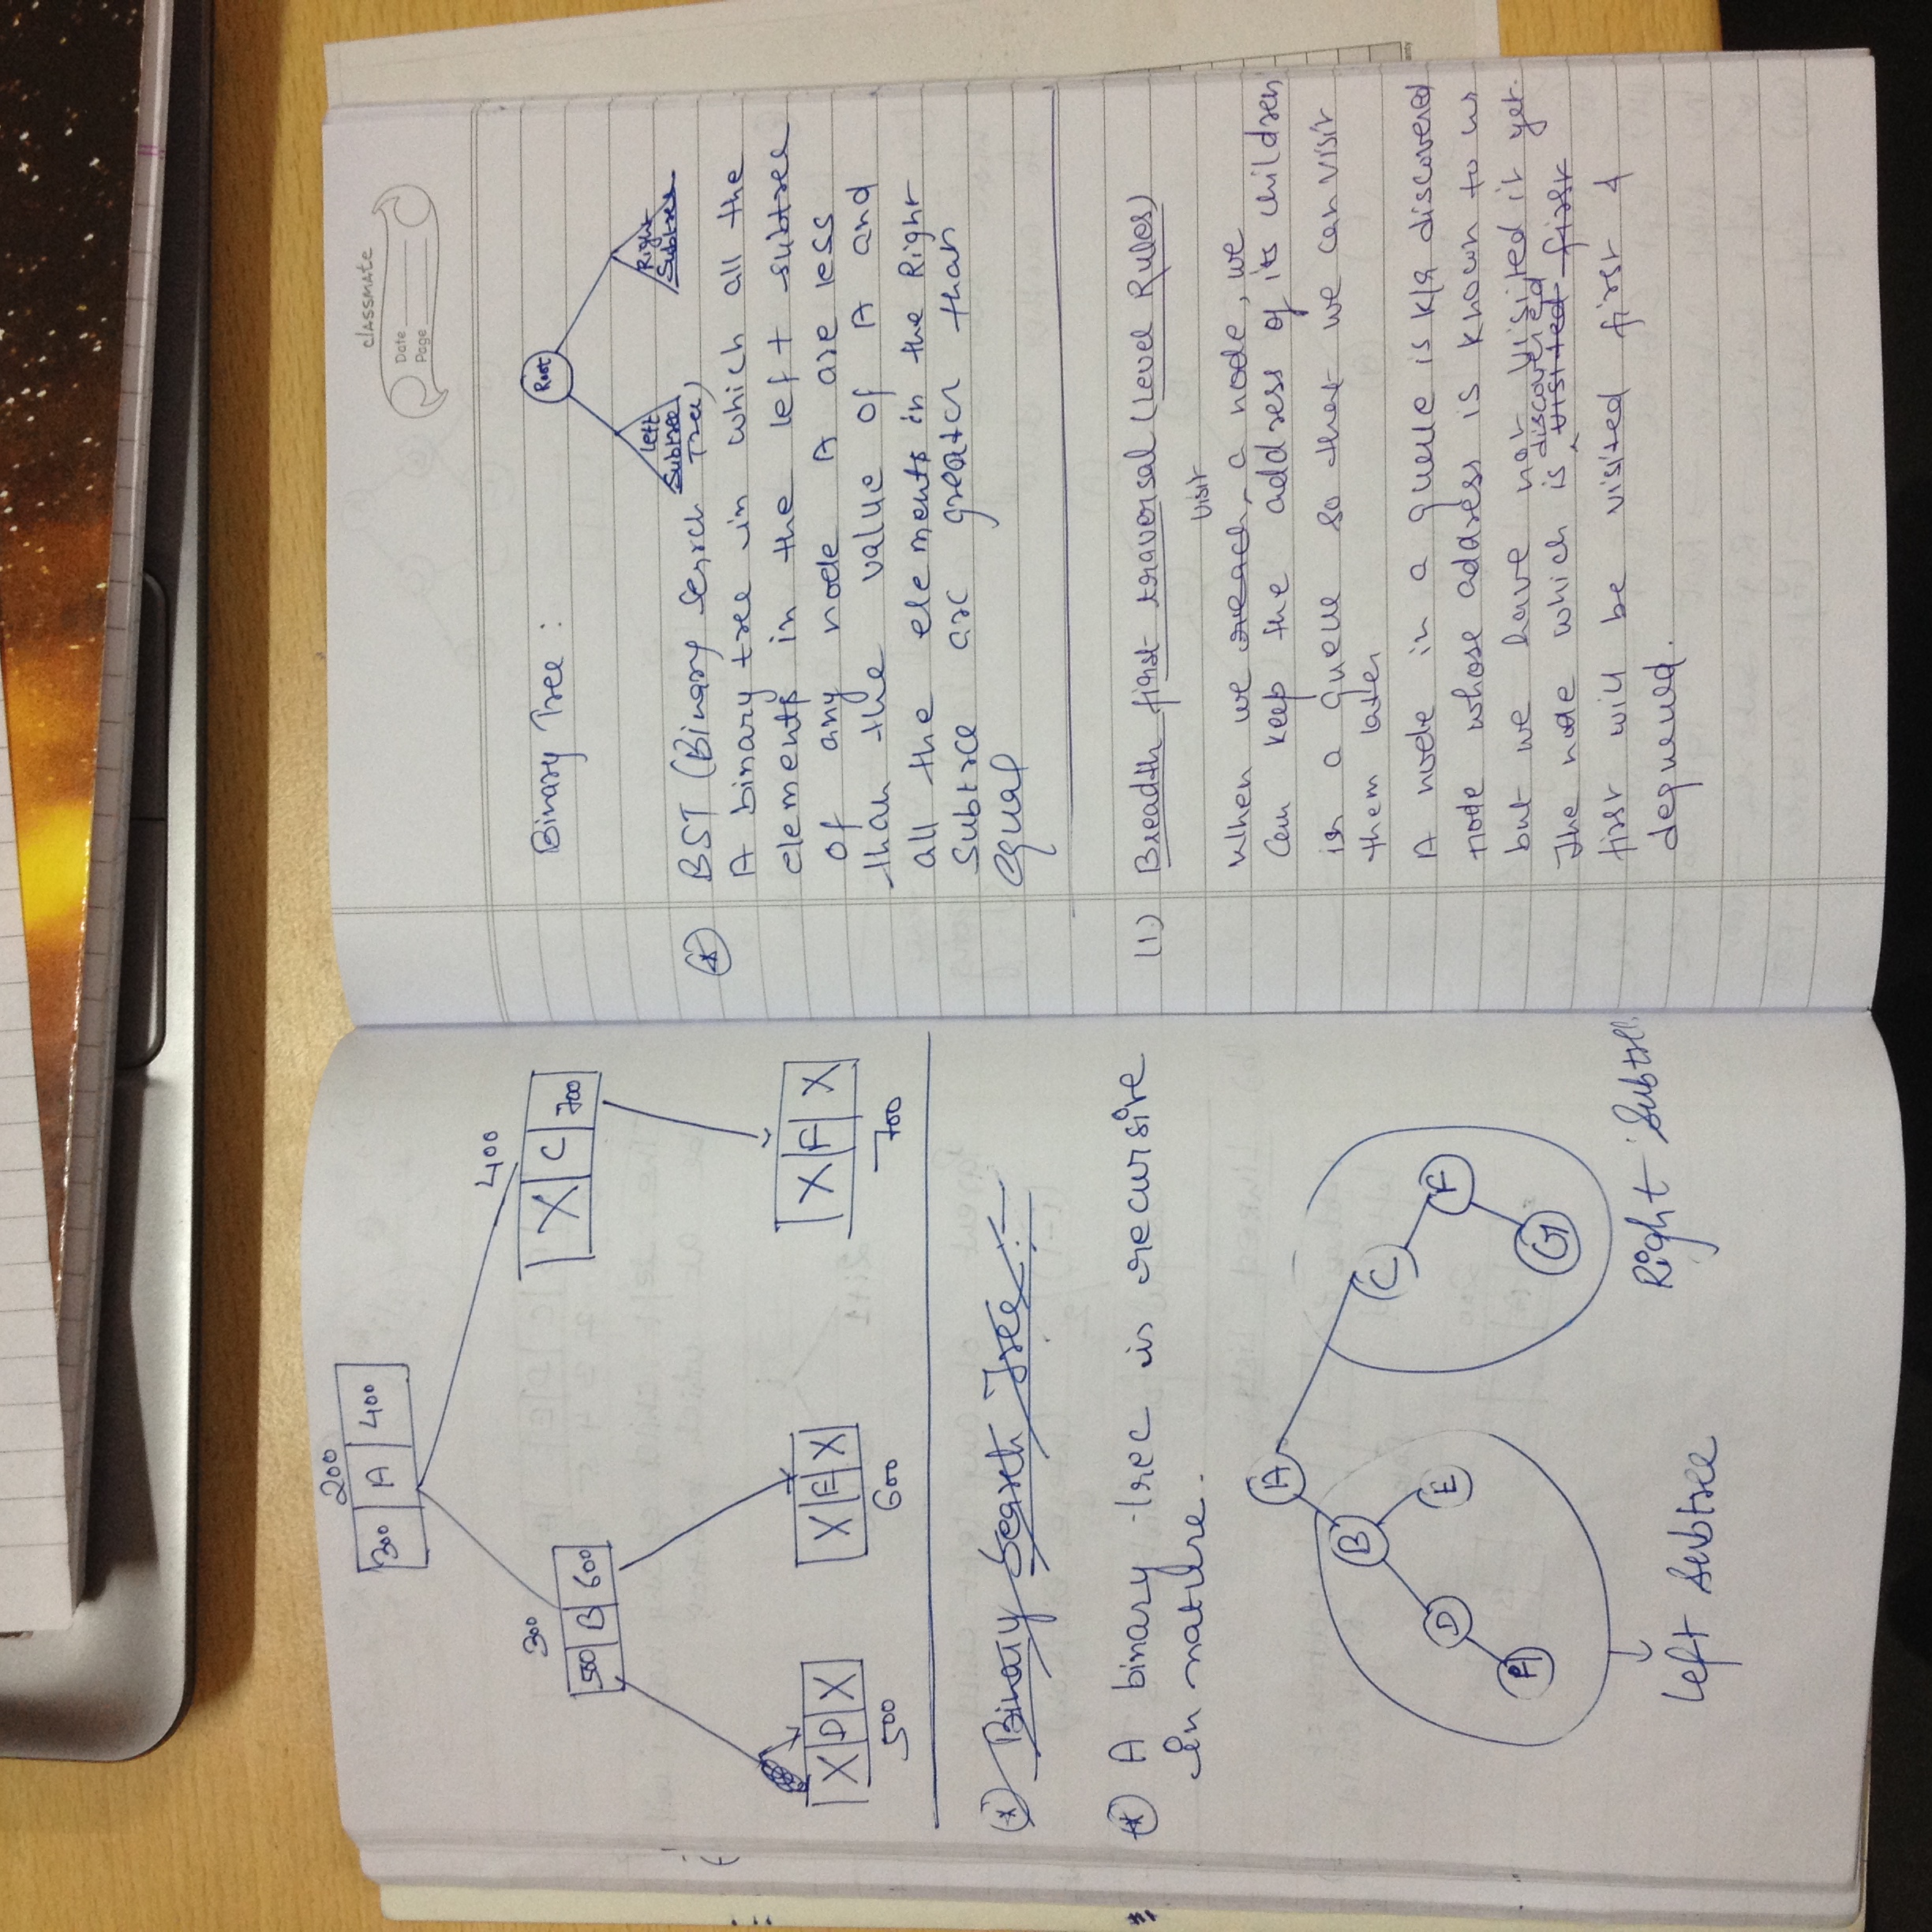 200
300 A 400
300
500 B 600
400
X C 700
X D X
500
X E X
600
X F X
700
Binary Search Tree :-
A binary tree is recursive
in nature.
A
B
C
D
E
F
G
left subtree
Right Subtree
classmate
Date
Page
Binary Tree :
Root
left
Subtree
Right
Subtree
BST (Binary Search
Tree)
A binary tree in which all the
elements in the left subtree
of any node A are less
than the value of A and
all the elements in the Right
subtree are greater than
equal
(1.) Breadth first traversal (Level Rules)
visit
When we reach, a node, we
can keep the address of its children
in a queue so that we can visit
them later
A node in a queue is k/a discovered
node whose address is known to us
but we have not visited it yet.
discovered
The node which is visited first
first will be visited first &
dequeued.